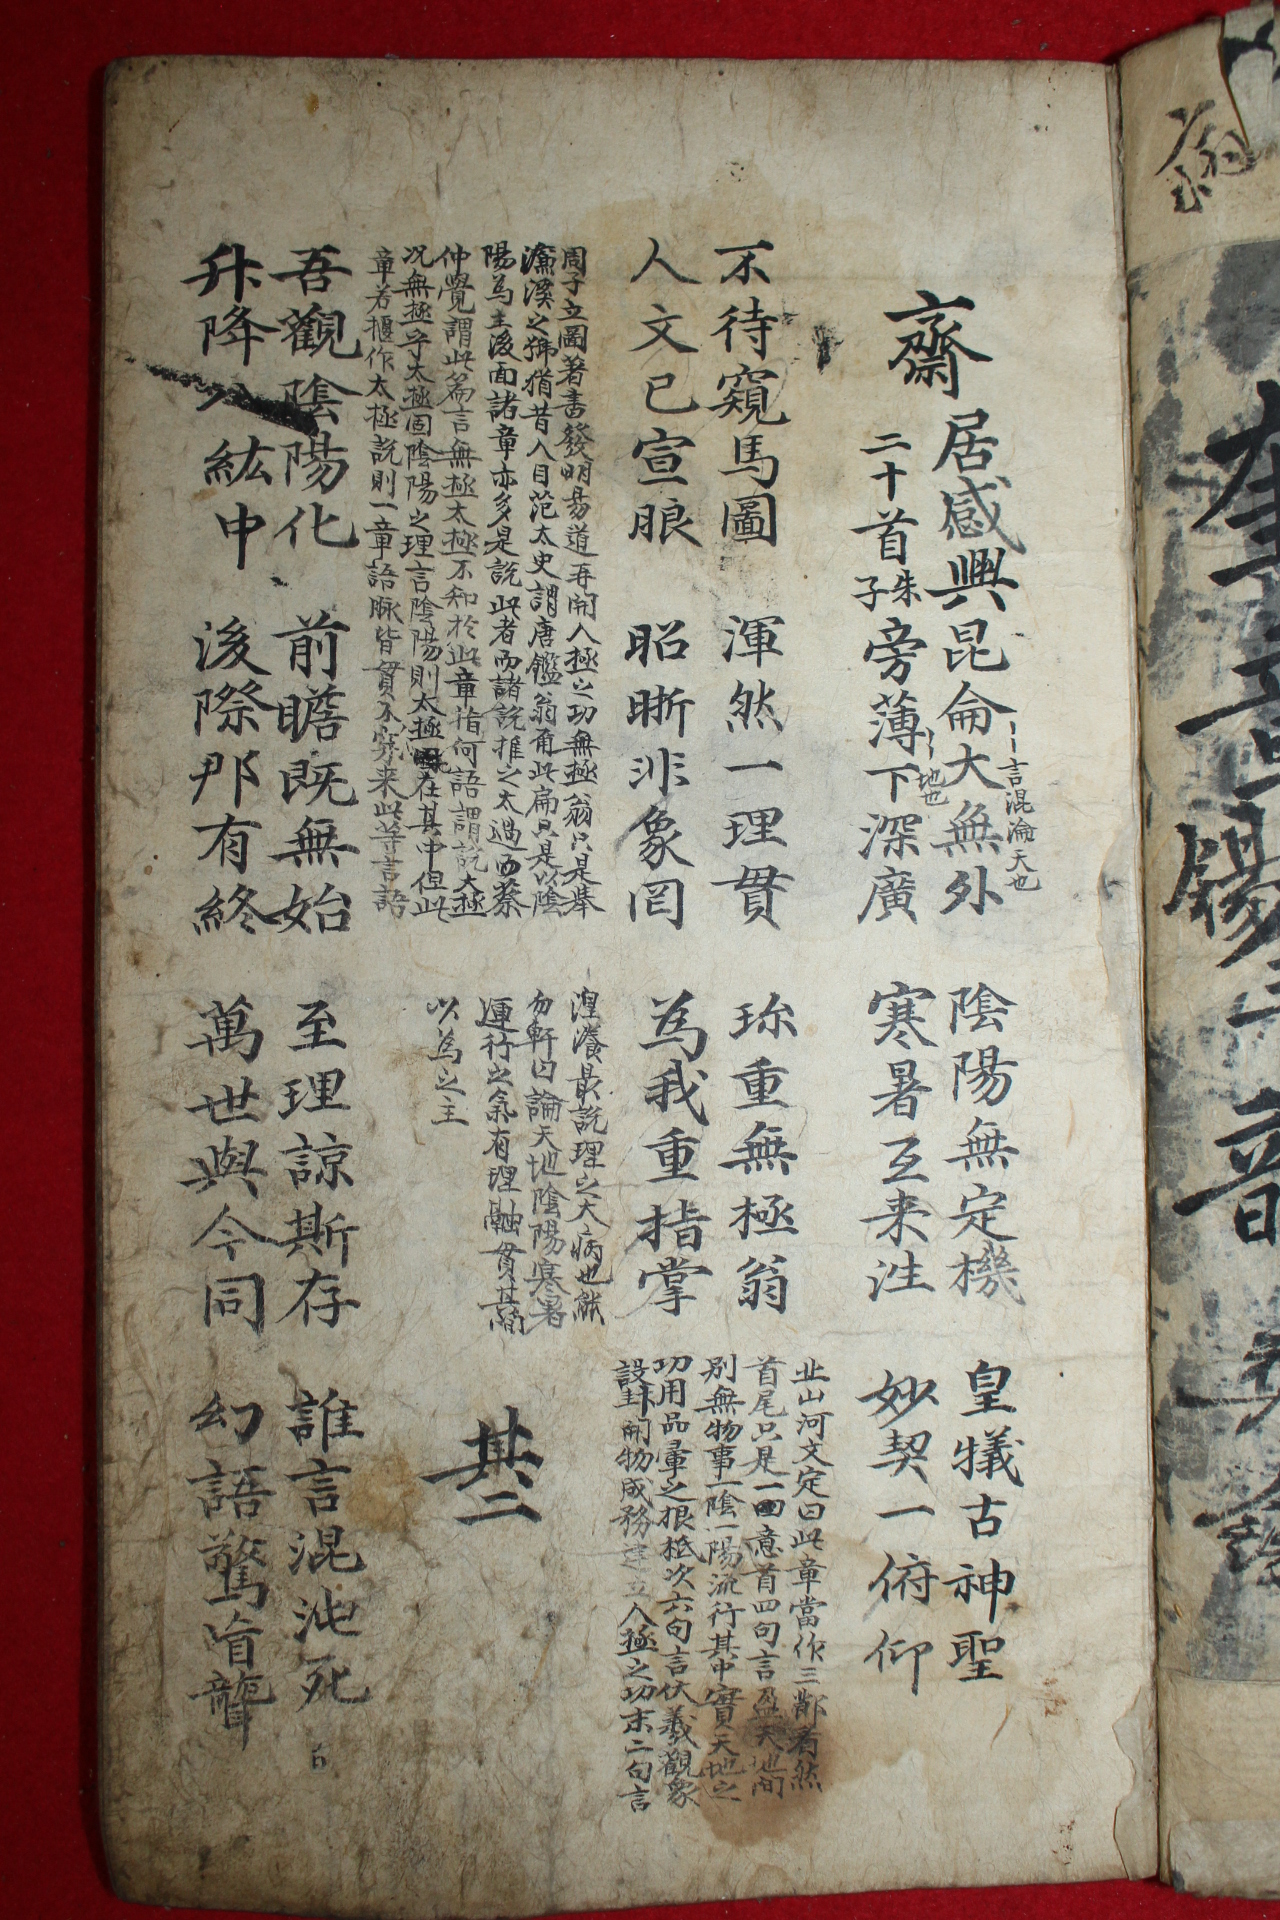 齋居感興二十首
朱子
昆侖大無外
〻〻言混淪天也
旁薄下深廣
〻〻地也
陰陽無定機
寒暑互来往
皇犧古神聖
妙契一俯仰
不待窺馬圖
人文已宣朗
渾然一理貫
昭晰非象罔
珎重無極翁
為我重指掌
北山河文定曰此章當作三節看然
首尾只是一囬意首四句言盈天地間
別無物事一陰一陽流行其中實天地之
功用品彙之根柢次六句言伏羲觀象
設卦開物成務建立人極之功末二句言
周子立圖著書發明易道再開人極之功無極翁只是舉
濂溪之號猶昔人目范太史謂唐鑑翁甬此扁只是以陰
陽為主後面諸章亦多是說此者而諸說推之太過而蔡
仲覺謂此篇言無極太極不知於此章指何語謂說太極
况無極乎太極固陰陽之理言陰陽則太極在其中但此
章若攝作太極說則一章語脉皆貫不穿来此等言語
滉瀁最說理之大病也熊
勿軒曰論天地陰陽寒暑
運行之氣有理融貫其間
以為之主
其二
吾觀陰陽化
升降八紘中
前瞻既無始
後際那有終
至理諒斯存
萬世與今同
誰言混沌死
幻語驚盲聾